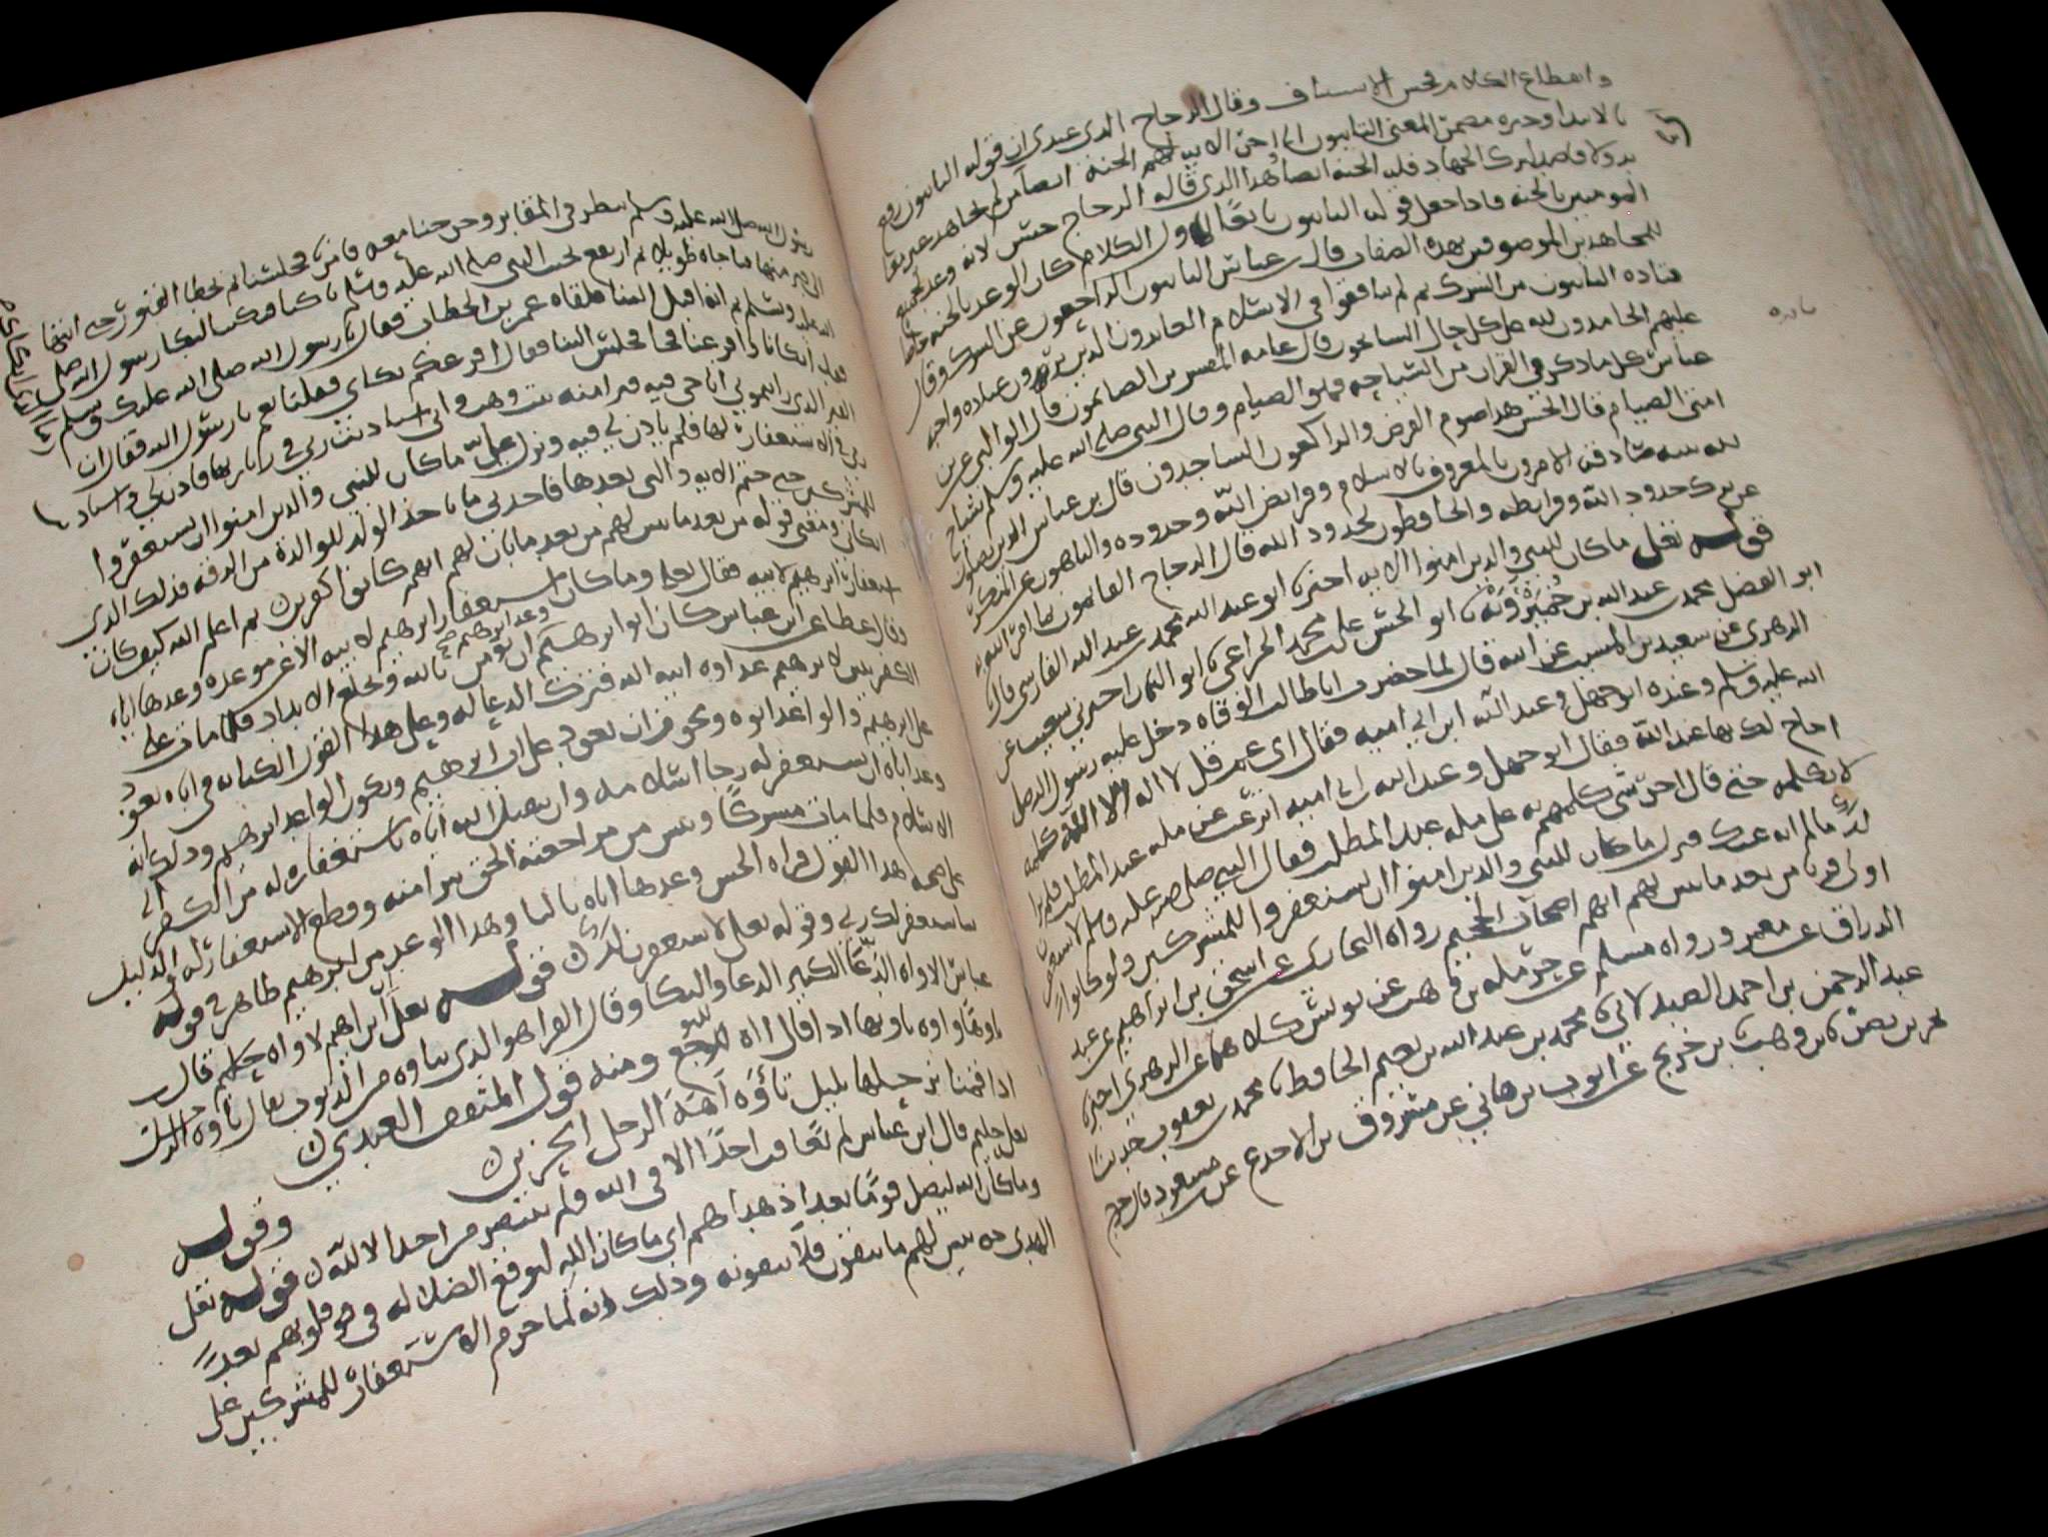 وانقطاع الكلام يحسن الاستئناف وقال الزجاج الذي عندي ان قوله التائبون رفع
بالابتدا وخبره مضمر المعنى التائبون الى اخر الايه لهم الجنة ايضا من لم يجاهد غير
ولا قاصد لترك الجهاد فله الجنة ايضا وهذا الذي قاله الزجاج حسن لانه وعد
المومنين بالجنه فاذا جعل قوله التائبون تابعا لاول الكلام كان الوعد بالجنه
للمجاهدين الموصوفين بهذه الصفات قال عباس التائبون الراجعون عن الشرك وقال
قتاده التائبون من الشرك ثم لم ينافقوا في الاسلام العابدون الذين يرون عباده واجبه
عليهم الحامدون لله على كل حال السائحون قال عامه المفسرين الصائمون قال الوالبي عن
عباس كل ما ذكر في القران من السياحه فهو الصيام وقال النبي صلى الله عليه وسلم سياحه
امتي الصيام قال الحسن هذا صوم الفرض والراكعون الساجدون قال بن عباس الذين يصلون
لله بنيه صادقه الامرون بالمعروف بالاسلام وفرايض الله وحدوده والناهون عن المنكر
عن ترك حدود الله وفرايضه والحافظون لحدود الله قال الزجاج القائمون بما امر الله به
قوله تعلى ماكان للنبي والذين امنوا الايه اخبرنا ابو عبد الله محمد بن عبد الله الفارسي قال
ابو الفضل محمد بن عبد الله بن خميرويه نا ابو الحسن علي بن محمد الخزاعي نا ابو اليمان اخبرني شعيب عن
الزهري عن سعيد بن المسيب عن ابيه قال لما حضرت ابا طالب الوفاه دخل عليه رسول الله صلى
الله عليه وسلم وعنده ابو جهل وعبد الله ابن ابي اميه فقال اي عم قل لا اله الا الله كلمه
احاج لك بها عند الله فقال ابو جهل وعبد الله بن ابي اميه اترغب عن مله عبد المطلب فلم يزالا
يكلمه حتى قال اخر شي كلمهم به على مله عبد المطلب فقال النبي صلى الله عليه وسلم لاستغفرن
لك مالم انه عنك فنزل ماكان للنبي والذين امنوا ان يستغفروا للمشركين ولو كانوا
اولي قربى من بعد ما تبين لهم انهم اصحاب الجحيم رواه البخاري عن اسحق بن ابراهيم عن عبد
الرزاق عن معمر ورواه مسلم عن حرمله بن وهب عن يونس كلاهما عن الزهري اخبرنا
عبد الرحمن بن احمد الصيدلاني نا محمد بن عبد الله بن نعيم الحافظ نا محمد بن يعقوب حدثنا
بحر بن نصر نا بن وهب بن جريج عن ايوب بن هاني عن مسروق بن الاجدع عن مسعود قال خرج
رسول الله صلى الله عليه وسلم ينظر في المقابر وخرجنا معه فامرنا فجلسنا ثم تخطا القبور حتى انتها
الى قبر منها فناجاه طويلا ثم ارتفع نحيب النبي صلى الله عليه وسلم باكيا فبكينا لبكا رسول الله صلى
الله عليه وسلم ثم انه اقبل الينا فلقاه عمر بن الخطاب فقال يا رسول الله صلى الله عليك وسلم ما
الذي ابكاك
فقد ابكانا وافزعنا فجا فجلس الينا فقال افزعكم بكاي فقلنا نعم يا رسول الله فقال ان
القبر الذي رايتموني اناجي فيه قبر امنه بنت وهب واني استاذنت ربي في زيارتها فاذن لي واستاذنت
ربي في الاستغفار لها فلم ياذن لي فيه ونزل علي ماكان للنبي والذين امنوا ان يستغفروا
للمشركين حتى ختم الايه والتي بعدها فاخذني ما ياخذ الولد للوالدة من الرقه فذلك الذي
ابكاني ومعنى قوله من بعد ما تبين لهم من بعد ما بان لهم انهم كانوا كافرين ثم اعلم الله كيف كان
استغفار ابرهيم لابيه فقال تعلى وماكان استغفار ابرهيم لابيه الا عن موعده وعدها اياه
وقال عطا عن ابن عباس كان ابو ابرهيم وعد ابرهيم ان يومن بالله ويخلع الانداد فلما مات على
الكفر تبين لابرهيم عداوه ابيه الله فترك الدعا له وعلى هذا القول الكنايه في اياه تعود
على ابرهيم والواعد ابوه ويجوز ان تعود على ابي ابرهيم ويكون الواعد ابرهيم وذلك انه
وعد اباه ان يستغفر له رجا اسلامه وان ينقل الله اباه باستغفاره له من الكفر الى
الاسلام فلما مات مشركا ويئس من مراجعته الحق تبرا منه وقطع الاستغفار له والدليل
على صحه هذا القول قراه الحسن وعدها اباه بالبا وهذا الوعد من ابرهيم ظاهر في قوله
ساستغفر لك ربي وقوله تعلى لاستغفرن لك قوله تعلى ان ابراهيم لاواه حليم قال
عباس الاواه الدعا الكثير الدعا والبكا وقال الفرا هو الذي يتاوه من الذنوب يقال تاوه الرجل
تاوها واوه تاويها اذا قال اه للتوجع ومنه قول المثقب العبدي
اذا قمت ارحلها بليل تأوه آهة الرجل الحزين
وقوله
تعلى حليم قال ابن عباس لم يعاقب احدا الا في الله ولم ينتصر من احد الا لله قوله تعلى
وماكان الله ليضل قوما بعد اذ هداهم اي ماكان الله ليوقع الضلاله في قلوبهم بعد
الهدى حتى يبين لهم ما يتقون فلا يتقونه وذلك انه لما حرم الاستغفار للمشركين على